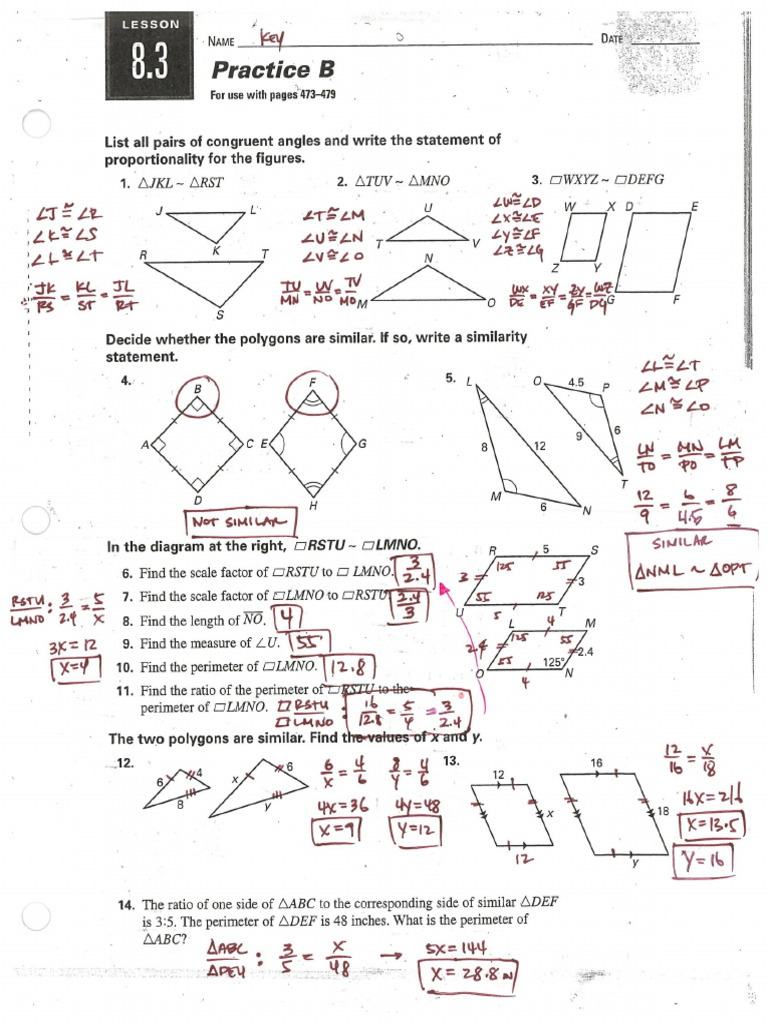 LESSON
8.3
NAME Key DATE
Practice B
For use with pages 473–479
List all pairs of congruent angles and write the statement of
proportionality for the figures.
1. △JKL ~ △RST
2. △TUV ~ △MNO
3. ▱WXYZ ~ ▱DEFG
∠J ≅ ∠R
∠K ≅ ∠S
∠L ≅ ∠T
JK/RS = KL/ST = JL/RT
J L K
R T S
∠T ≅ ∠M
∠U ≅ ∠N
∠V ≅ ∠O
TU/MN = UV/NO = TV/MO
U T V
N M O
∠W ≅ ∠D
∠X ≅ ∠E
∠Y ≅ ∠F
∠Z ≅ ∠G
WX/DE = XY/EF = ZY/GF = WZ/DG
W X Z Y
D E G F
Decide whether the polygons are similar. If so, write a similarity
statement.
4.
B A C D
F E G H
NOT SIMILAR
5.
L 8 12 M 6 N
O 4.5 P 9 6 T
∠L ≅ ∠T
∠M ≅ ∠P
∠N ≅ ∠O
LN/TO = MN/PO = LM/TP
12/9 = 6/4.5 = 8/6
SIMILAR
△NML ~ △OPT
In the diagram at the right, ▱RSTU ~ ▱LMNO.
6. Find the scale factor of ▱RSTU to ▱LMNO. 3/2.4
7. Find the scale factor of ▱LMNO to ▱RSTU. 2.4/3
8. Find the length of NO. 4
9. Find the measure of ∠U. 55°
10. Find the perimeter of ▱LMNO. 12.8
11. Find the ratio of the perimeter of ▱RSTU to the
perimeter of ▱LMNO. ▱RSTU/▱LMNO : 16/12.8 = 5/4 = 3/2.4
RSTU/LMNO : 3/2.4 = 5/x
3x = 12
x = 4
R 5 S
3 125 55 3
55 125
U 5 T
L 4 M
2.4 125 55 2.4
55 125°
O 4 N
The two polygons are similar. Find the values of x and y.
12.
6 4 8
x 6 y
6/x = 4/6
4x = 36
x = 9
8/y = 4/6
4y = 48
y = 12
13.
12 x 12
16 18 y
12/16 = x/18
16x = 216
x = 13.5
y = 16
14. The ratio of one side of △ABC to the corresponding side of similar △DEF
is 3:5. The perimeter of △DEF is 48 inches. What is the perimeter of
△ABC?
△ABC/△DEF : 3/5 = x/48 → 5x = 144
x = 28.8 IN